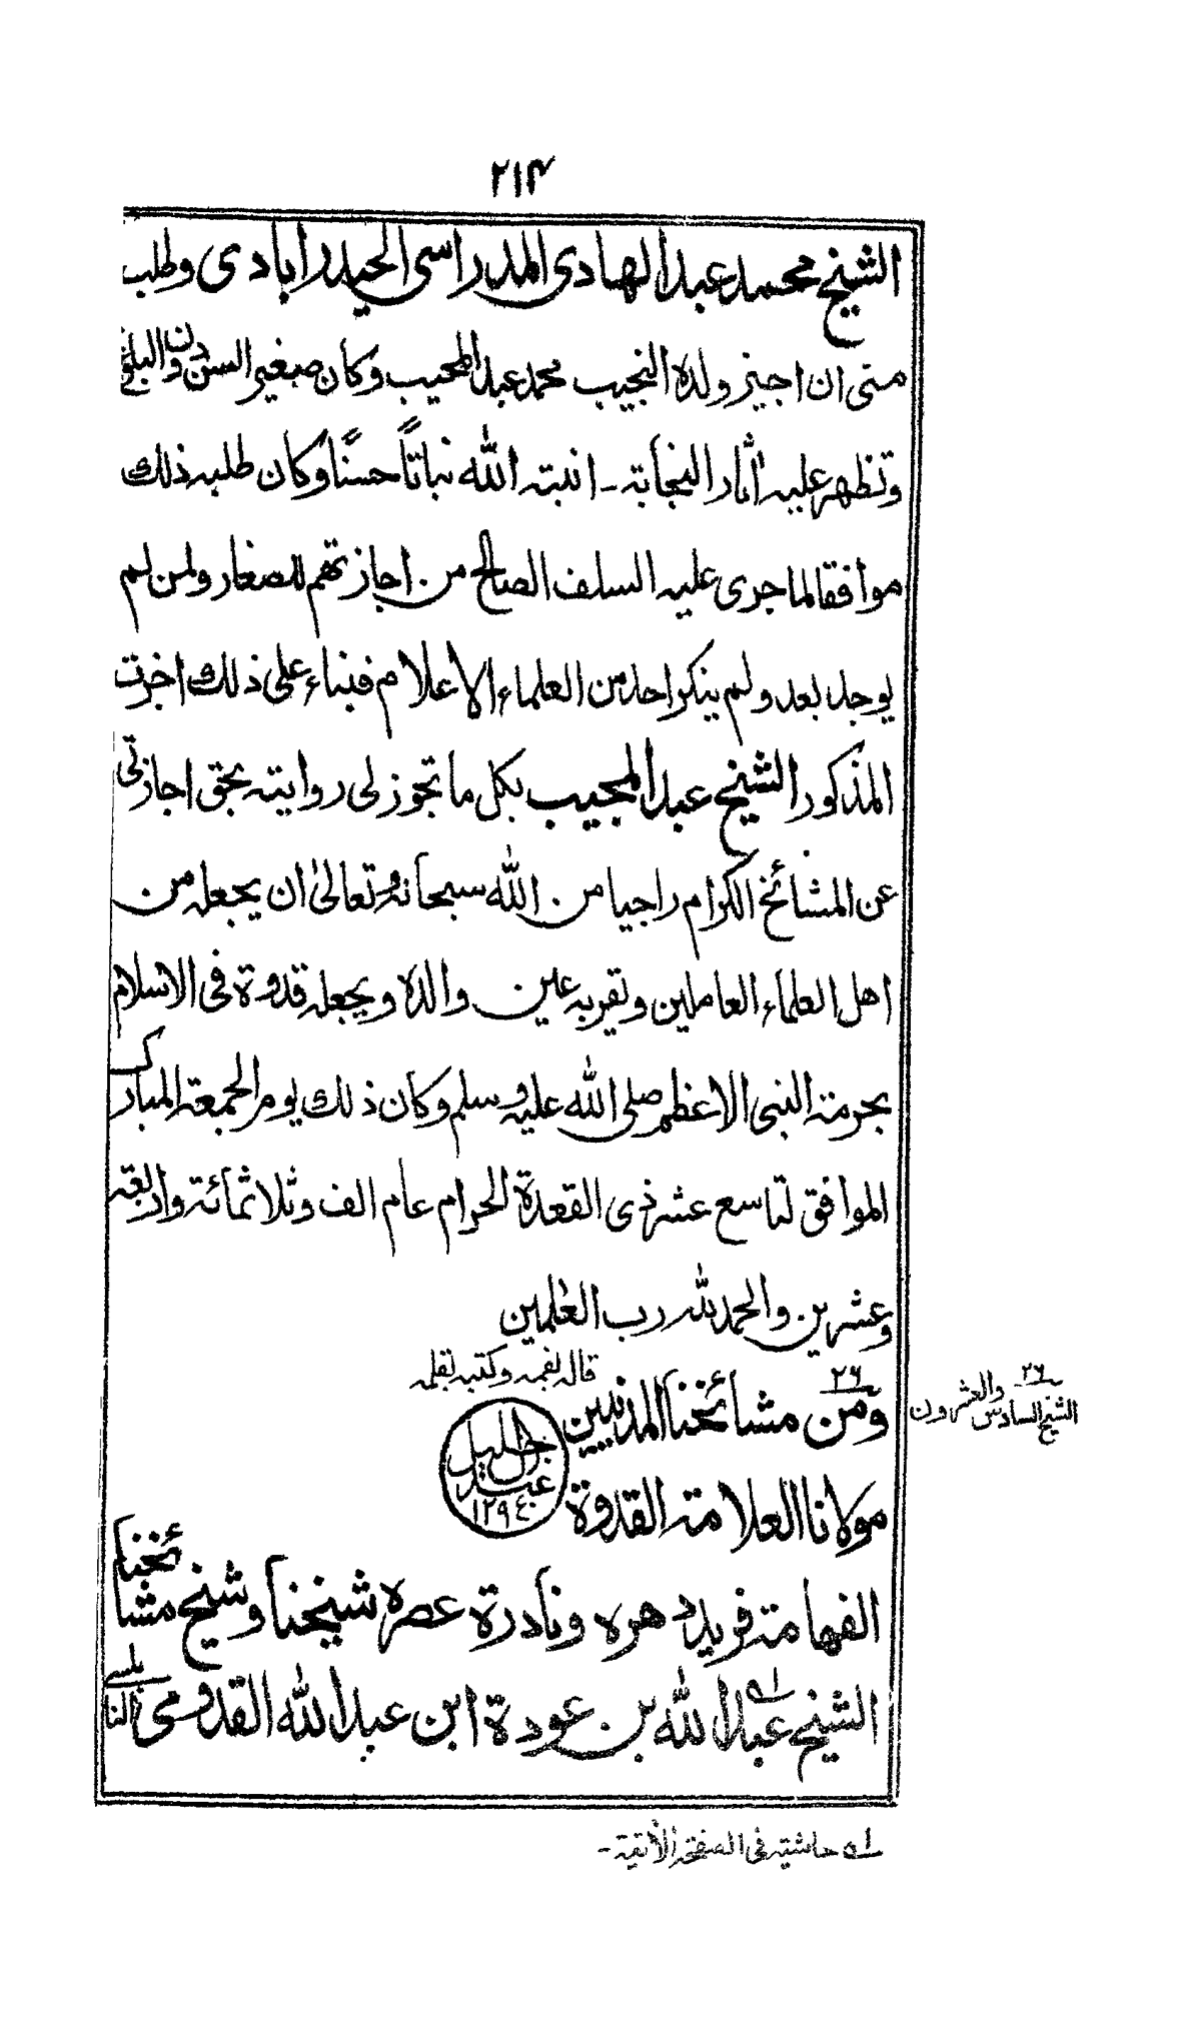 ٢١٤
الشيخ محمد عبد الهادى المدراسى الحيدرابادى وطلب
منى ان اجيز ولده النجيب محمد عبد المجيب وكان صغير السن دون البلوغ
وتظهر عليه أثار النجابة ۔ انبته الله نباتاً حسنًا وكان طلبه ذلك
موافقا لما جرى عليه السلف الصالح من اجازتهم للصغار ولمن لم
يوجد بعد ولم ينكر احد من العلماء الاعلام فبناء على ذلك اجزت
المذكور الشيخ عبد المجيب بكل ما تجوز لى روايته بحق اجازتى
عن المشائخ الكرام راجيا من الله سبحانه وتعالىٰ ان يجعله من
اهل العلماء العاملين وتقر به عين والده ويجعله قدوة فى الاسلام
بحرمة النبى الاعظم صلى الله عليه وسلم وكان ذلك يوم الجمعة المبارك
الموافق لتاسع عشر ذى القعدة الحرام عام الف وثلاثمائة واربعة
وعشرين والحمد لله رب العٰلمين
قاله بفمه وكتبه بقلمه
عبد الجليل
١٢٩٤
٢٦
ومن مشائخنا المدنيين
٢٦
الشيخ السادس والعشرون
مولانا العلامة القدوة
الفهامة فريد دهره ونادرة عصره شيخنا وشيخ مشائخنا
الشيخ عبد الله بن عودة ابن عبد الله القدومى النابلسى
ا؎ه حاشيته فى الصفحة الأتية ۔